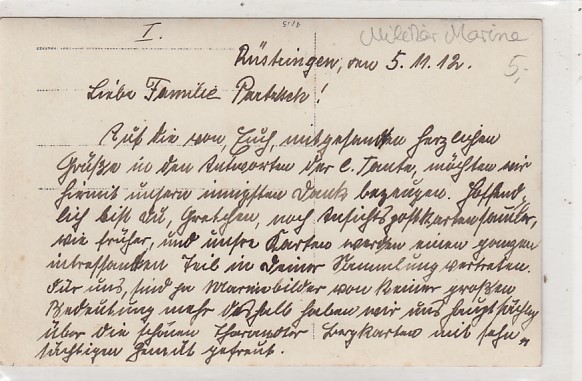 I.
Militär Marine
5,-
Rüstringen, den 5.11.12.
Liebe Familie
Auf die von Euch, mitgesandten herzlichen
Grüße in den Antworten der l. Tante, möchten wir
hiermit unsern innigsten Dank bezeugen. Hoffend,
lich bist du, Gretchen, noch Ansichtspostkartensammler,
wie früher, und unsre Karten werden einen ganzen
intressanten Teil in Deiner Sammlung vertreten.
Für uns, sind ja Marinebilder von keiner großen
Bedeutung mehr deshalb haben wir uns hauptsächlich
über die schönen Tharandter Bergkarten mit sehn„
süchtigen Gemüt gefreut.